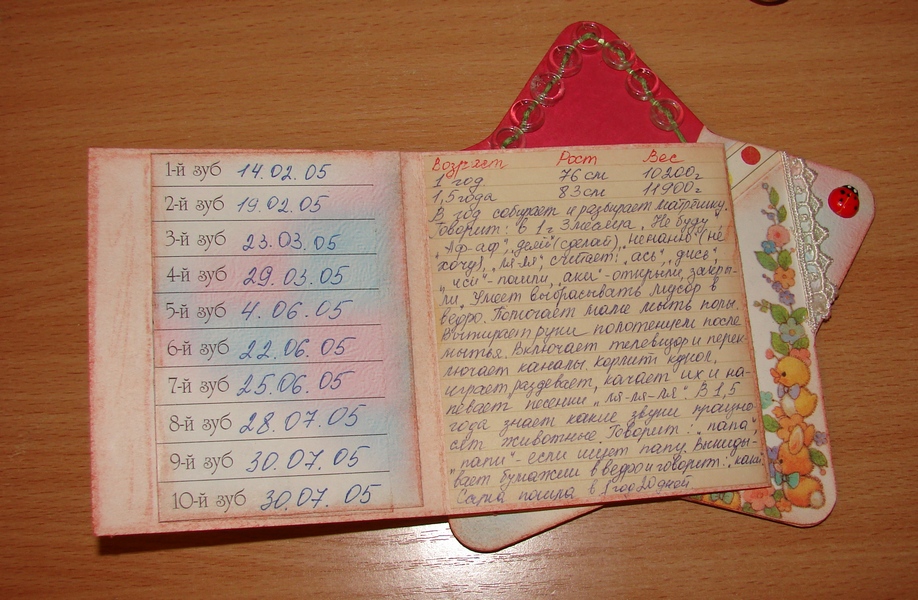 1-й зуб 14.02.05
2-й зуб 19.02.05
3-й зуб 23.03.05
4-й зуб 29.03.05
5-й зуб 4.06.05
6-й зуб 22.06.05
7-й зуб 25.06.05
8-й зуб 28.07.05
9-й зуб 30.07.05
10-й зуб 30.07.05
Возраст Рост Вес
1 год 76 см 10200г
1,5 года 83 см 11900г
В год собирает и разбирает матрёшку.
Говорит: в 1 г 3 месяца „Не буду",
„Аф-аф", делей (сделай), (не
хочу), „ля-ля", считает: „ась", „дись",
- открыли, закры-
ли. Умеет выбрасывать мусор в
ведро. Помогает маме мыть полы.
Вытирает руки полотенцем после
мытья. Включает телевизор и перек-
лючает каналы. Кормит кукол,
играет, раздевает, качает их и на-
певает песенки „ля-ля-ля". В 1,5
года знает какие звуки произно-
сят животные. Говорит: „папа",
„папи" - если ищет папу. Выкиды-
вает бумажки в ведро и говорит:
Сама пошла в 1 год 20 дней